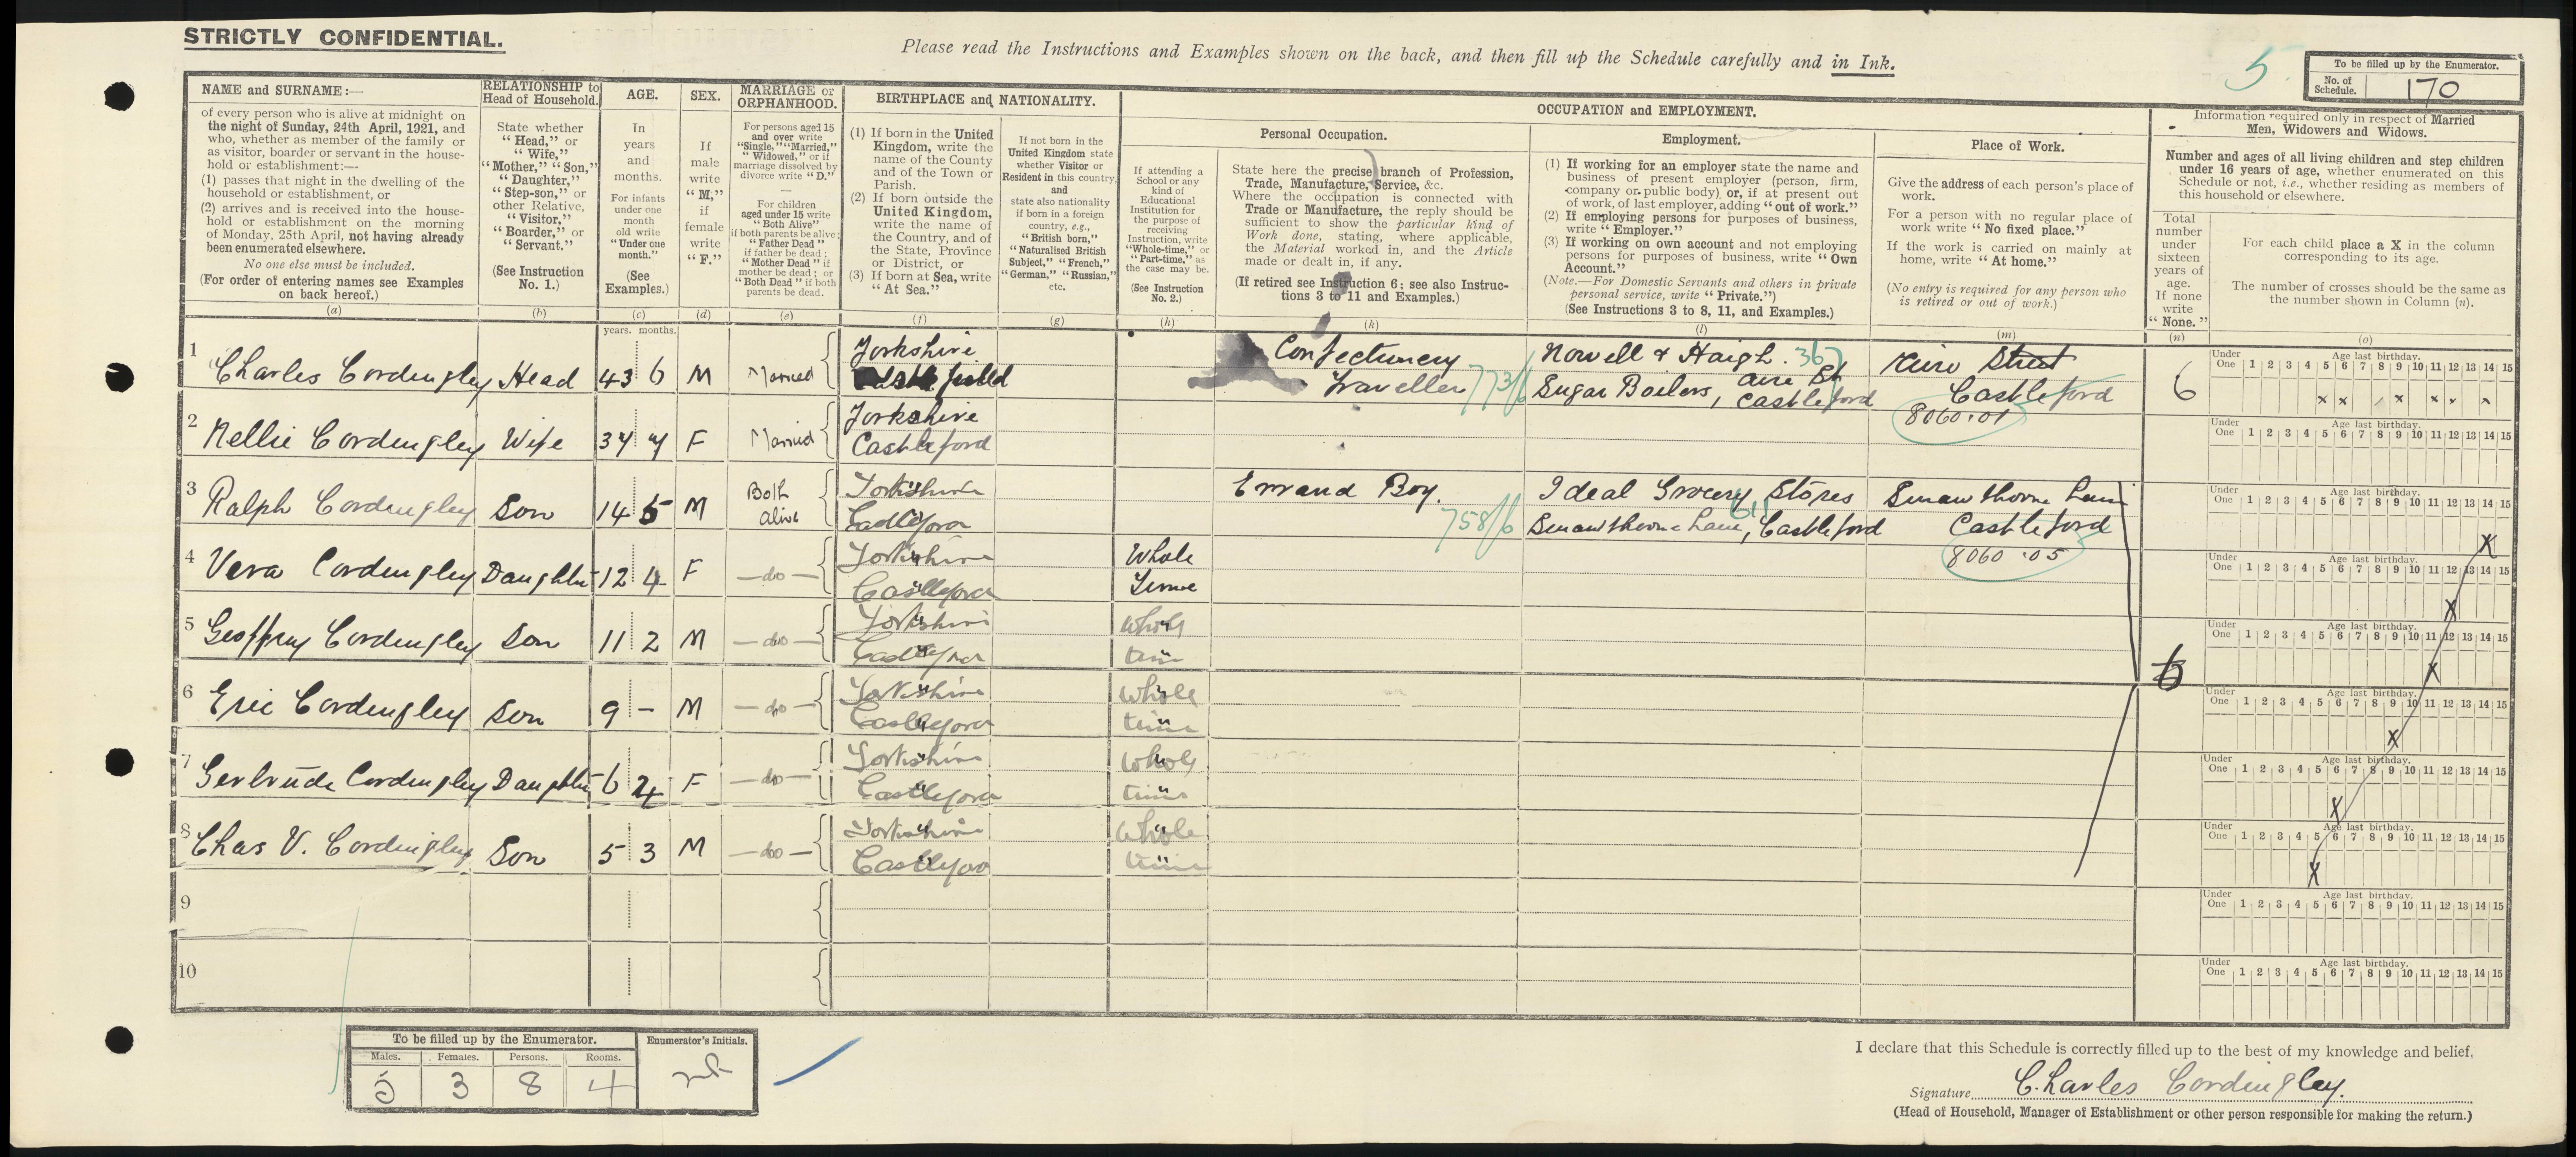 STRICTLY CONFIDENTIAL.
Please read the Instructions and Examples shown on the back, and then fill up the Schedule carefully and in Ink.
5
To be filled up by the Enumerator.
No. of Schedule. 170
NAME and SURNAME:—
of every person who is alive at midnight on
the night of Sunday, 24th April, 1921, and
who, whether as member of the family or
as visitor, boarder or servant in the house-
hold or establishment:—
(1) passes that night in the dwelling of the
household or establishment, or
(2) arrives and is received into the house-
hold or establishment on the morning
of Monday, 25th April, not having already
been enumerated elsewhere.
No one else must be included.
(For order of entering names see Examples
on back hereof.)
(a)
RELATIONSHIP to
Head of Household.
State whether
"Head," or
"Wife,"
"Mother," "Son,"
"Daughter,"
"Step-son," or
other Relative,
"Visitor,"
"Boarder," or
"Servant."
(See Instruction
No. 1.)
(b)
AGE.
In
years
and
months.
For infants
under one
month
old write
"Under one
month."
(See
Examples.)
(c)
years. months.
SEX.
If
male
write
"M,"
if
female
write
"F."
(d)
MARRIAGE or
ORPHANHOOD.
For persons aged 15
and over write
"Single," "Married,"
"Widowed," or if
marriage dissolved by
divorce write "D."
—
For children
aged under 15 write
"Both Alive"
if both parents be alive;
"Father Dead"
if father be dead;
"Mother Dead" if
mother be dead; or
"Both Dead" if both
parents be dead.
(e)
BIRTHPLACE and NATIONALITY.
(1) If born in the United
Kingdom, write the
name of the County
and of the Town or
Parish.
(2) If born outside the
United Kingdom,
write the name of
the Country, and of
the State, Province
or District, or
(3) If born at Sea, write
"At Sea."
(f)
If not born in the
United Kingdom state
whether Visitor or
Resident in this country,
and
state also nationality
if born in a foreign
country, e.g.,
"British born,"
"Naturalised British
Subject," "French,"
"German," "Russian,"
etc.
(g)
OCCUPATION and EMPLOYMENT.
If attending a
School or any
kind of
Educational
Institution for
the purpose of
receiving
Instruction, write
"Whole-time," or
"Part-time," as
the case may be.
(See Instruction
No. 2.)
(h)
Personal Occupation.
State here the precise branch of Profession,
Trade, Manufacture, Service, &c.
Where the occupation is connected with
Trade or Manufacture, the reply should be
sufficient to show the particular kind of
Work done, stating, where applicable,
the Material worked in, and the Article
made or dealt in, if any.
(If retired see Instruction 6; see also Instruc-
tions 3 to 11 and Examples.)
(k)
Employment.
(1) If working for an employer state the name and
business of present employer (person, firm,
company or public body) or, if at present out
of work, of last employer, adding "out of work."
(2) If employing persons for purposes of business,
write "Employer."
(3) If working on own account and not employing
persons for purposes of business, write "Own
Account."
(Note.—For Domestic Servants and others in private
personal service, write "Private.")
(See Instructions 3 to 8, 11, and Examples.)
(l)
Place of Work.
Give the address of each person's place of
work.
For a person with no regular place of
work write "No fixed place."
If the work is carried on mainly at
home, write "At home."
(No entry is required for any person who
is retired or out of work.)
(m)
Information required only in respect of Married
Men, Widowers and Widows.
Number and ages of all living children and step children
under 16 years of age, whether enumerated on this
Schedule or not, i.e., whether residing as members of
this household or elsewhere.
Total
number
under
sixteen
years of
age.
If none
write
"None."
(n)
For each child place a X in the column
corresponding to its age.
The number of crosses should be the same as
the number shown in Column (n).
(o)
1 Charles Cordingley Head 43 6 M Married Yorkshire
Confectionery Traveller 773/6
Nowell & Haigh. 367
Sugar Boilers, Aire St Castleford
Street
Castleford
8060.01
6
Under One 1 2 3 4 5 6 7 8 9 10 11 12 13 14 15
Age last birthday.
2 Nellie Cordingley Wife 37 7 F Married Yorkshire
Castleford
Under One 1 2 3 4 5 6 7 8 9 10 11 12 13 14 15
Age last birthday.
3 Ralph Cordingley Son 14 5 M Both Alive Yorkshire
Castleford
Errand Boy. 758/6
Ideal Grocery Stores 611
Smawthorne Lane, Castleford
Smawthorne Lane
Castleford
8060.05
Under One 1 2 3 4 5 6 7 8 9 10 11 12 13 14 15
Age last birthday.
X
4 Vera Cordingley Daughter 12 4 F — do — Yorkshire
Castleford
Whole
Time
Under One 1 2 3 4 5 6 7 8 9 10 11 12 13 14 15
Age last birthday.
X
5 Geoffrey Cordingley Son 11 2 M — do — Yorkshire
Castleford
Whole
time
6
Under One 1 2 3 4 5 6 7 8 9 10 11 12 13 14 15
Age last birthday.
X
6 Eric Cordingley Son 9 — M — do — Yorkshire
Castleford
Whole
time
Under One 1 2 3 4 5 6 7 8 9 10 11 12 13 14 15
Age last birthday.
X
7 Gertrude Cordingley Daughter 6 F — do — Yorkshire
Castleford
Whole
time
Under One 1 2 3 4 5 6 7 8 9 10 11 12 13 14 15
Age last birthday.
X
8 Chas V. Cordingley Son 5 3 M — do — Yorkshire
Castleford
Whole
time
Under One 1 2 3 4 5 6 7 8 9 10 11 12 13 14 15
Age last birthday.
X
9
Under One 1 2 3 4 5 6 7 8 9 10 11 12 13 14 15
Age last birthday.
10
Under One 1 2 3 4 5 6 7 8 9 10 11 12 13 14 15
Age last birthday.
To be filled up by the Enumerator.
Males. Females. Persons. Rooms.
5 3 8 4
Enumerator's Initials.
I declare that this Schedule is correctly filled up to the best of my knowledge and belief,
Signature Charles Cordingley.
(Head of Household, Manager of Establishment or other person responsible for making the return.)